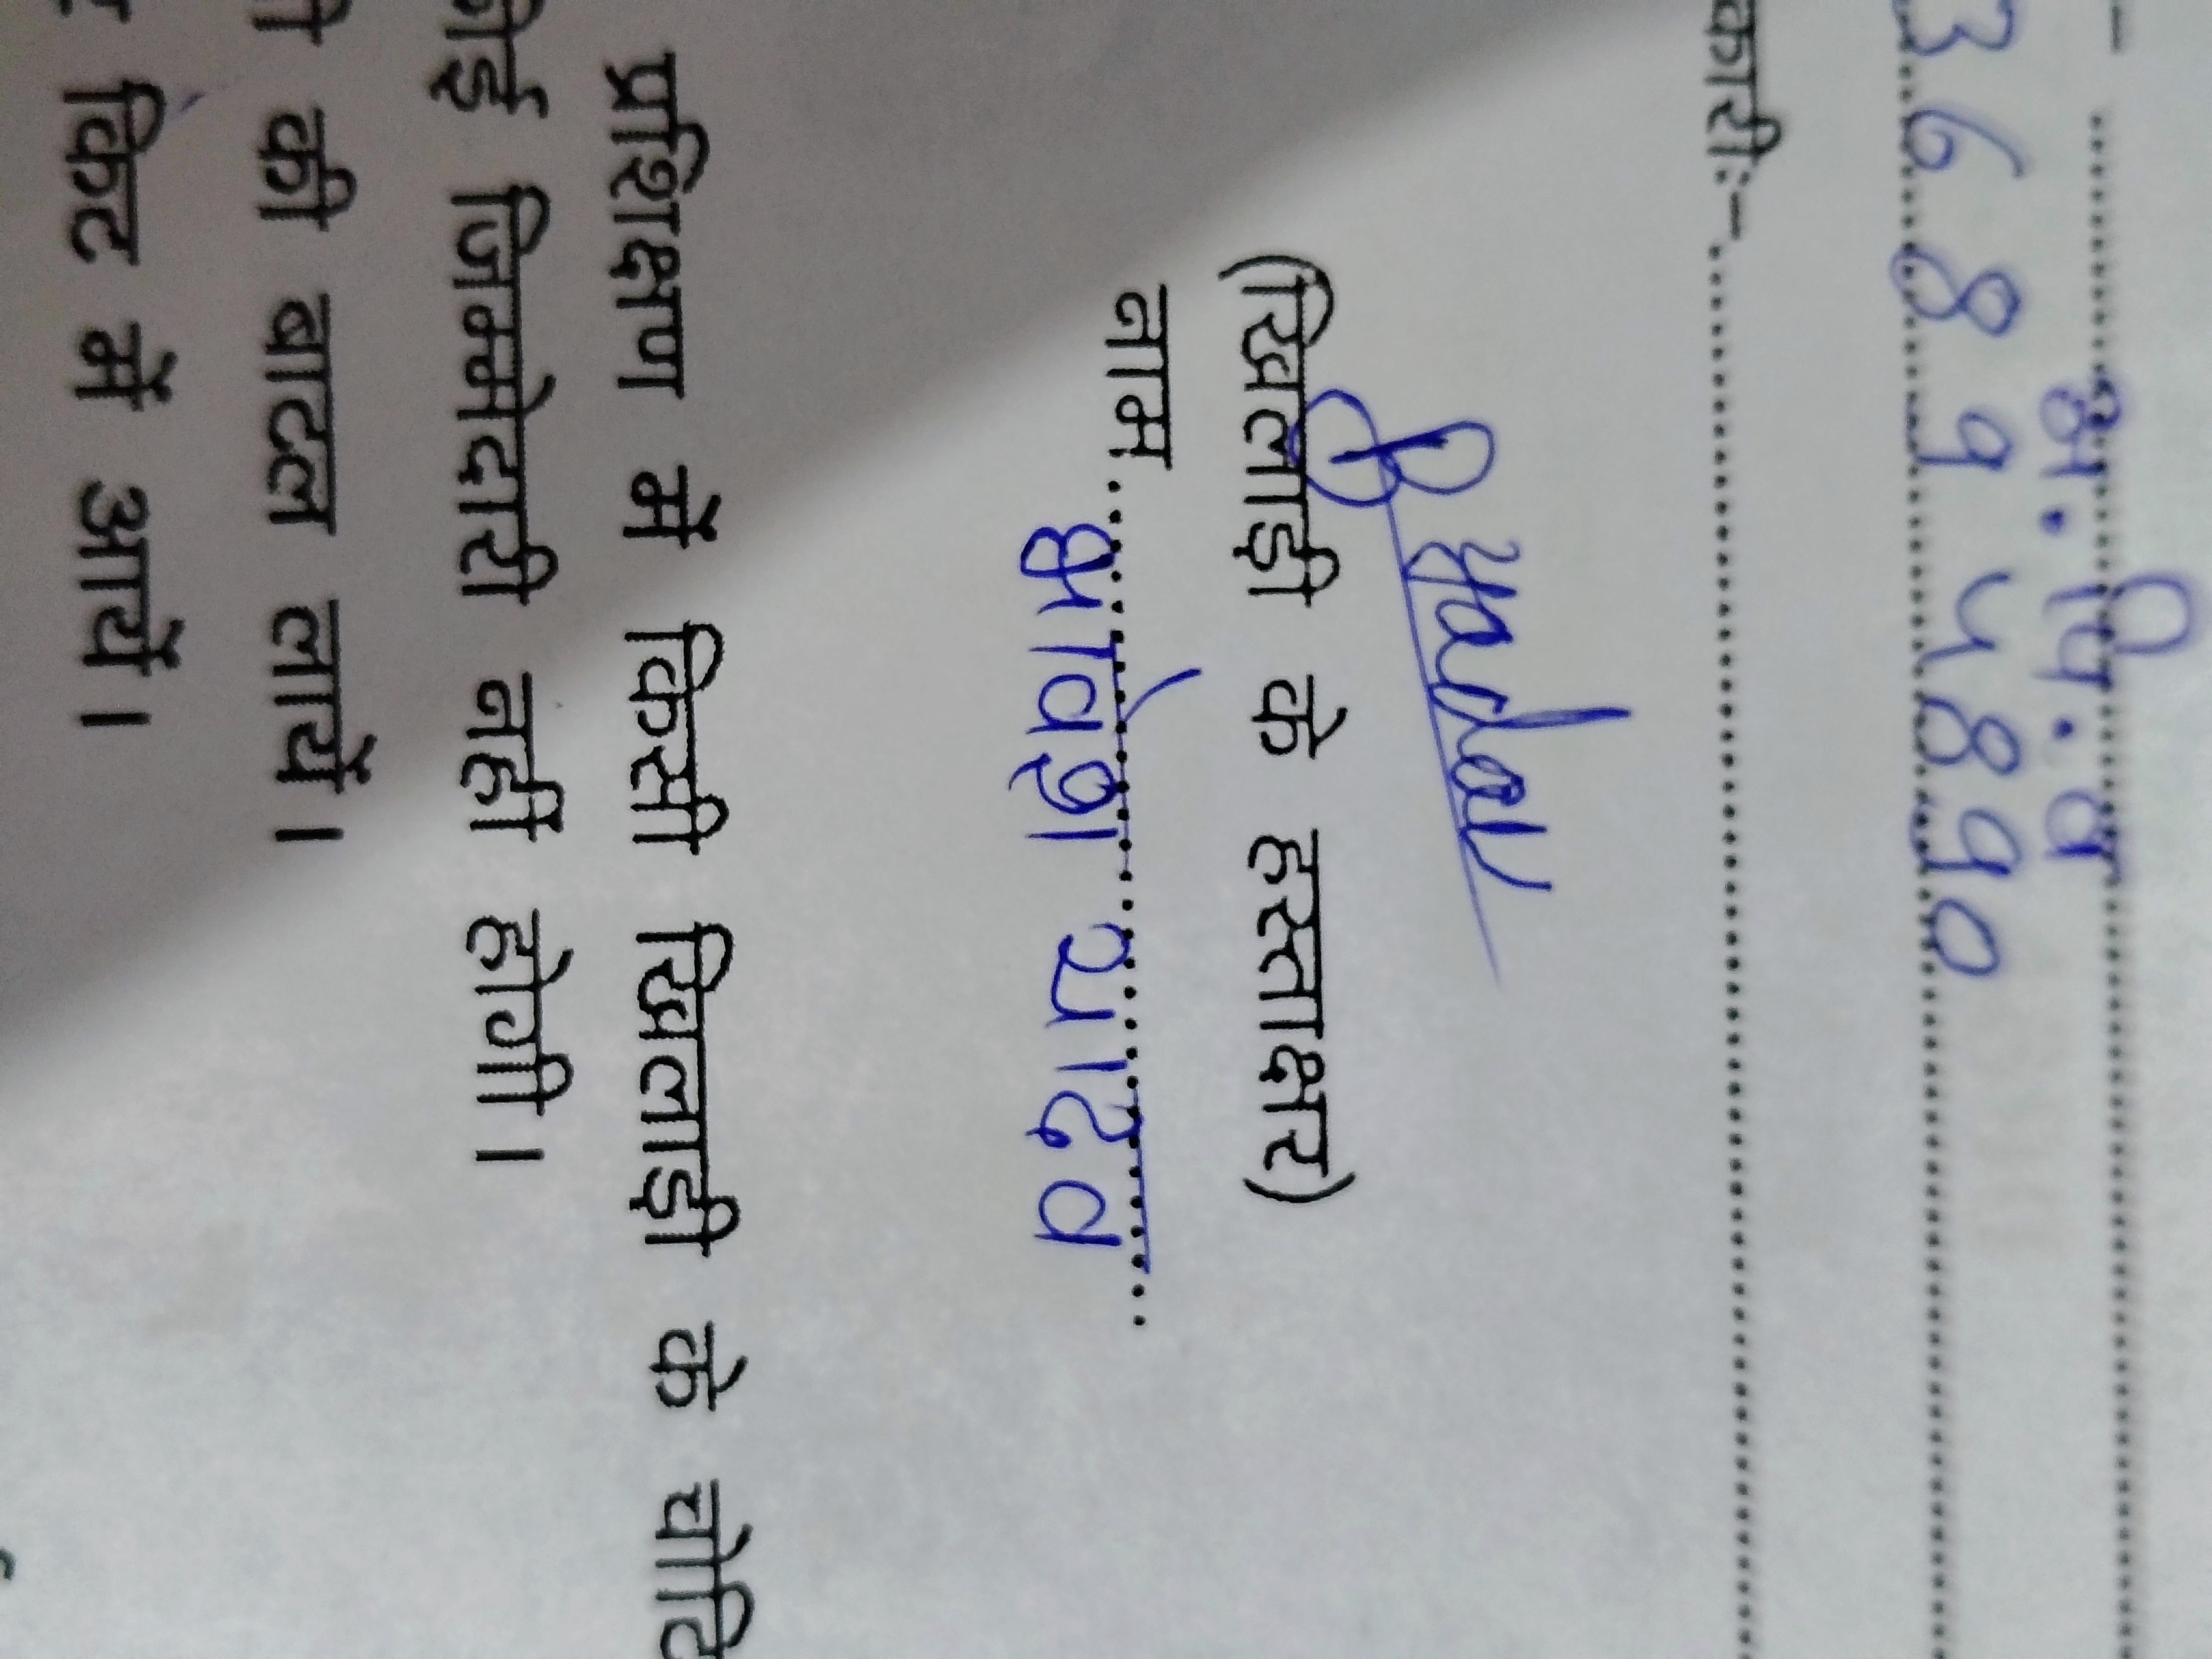 म.पि.व
3 6 8 9 5 8 9 0
कारीः-
Byadav
(खिलाड़ी के हस्ताक्षर)
नाम भावेश यादव
प्रशिक्षण में किसी खिलाड़ी के चोटि
कोई जिम्मेदारी नहीं होगी।
की बाटल लायें।
किट में आयें।